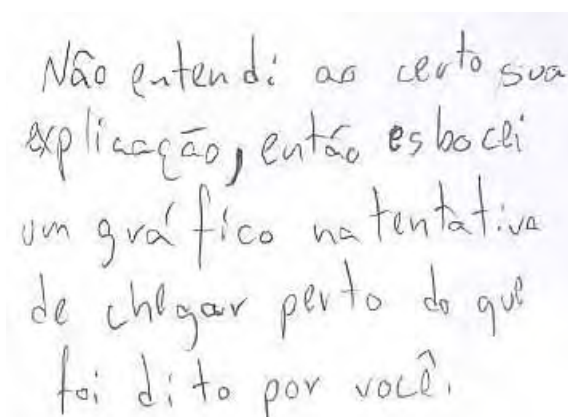 Não entendi ao certo sua
explicação, então esbocei
um gráfico na tentativa
de chegar perto do que
foi dito por você.